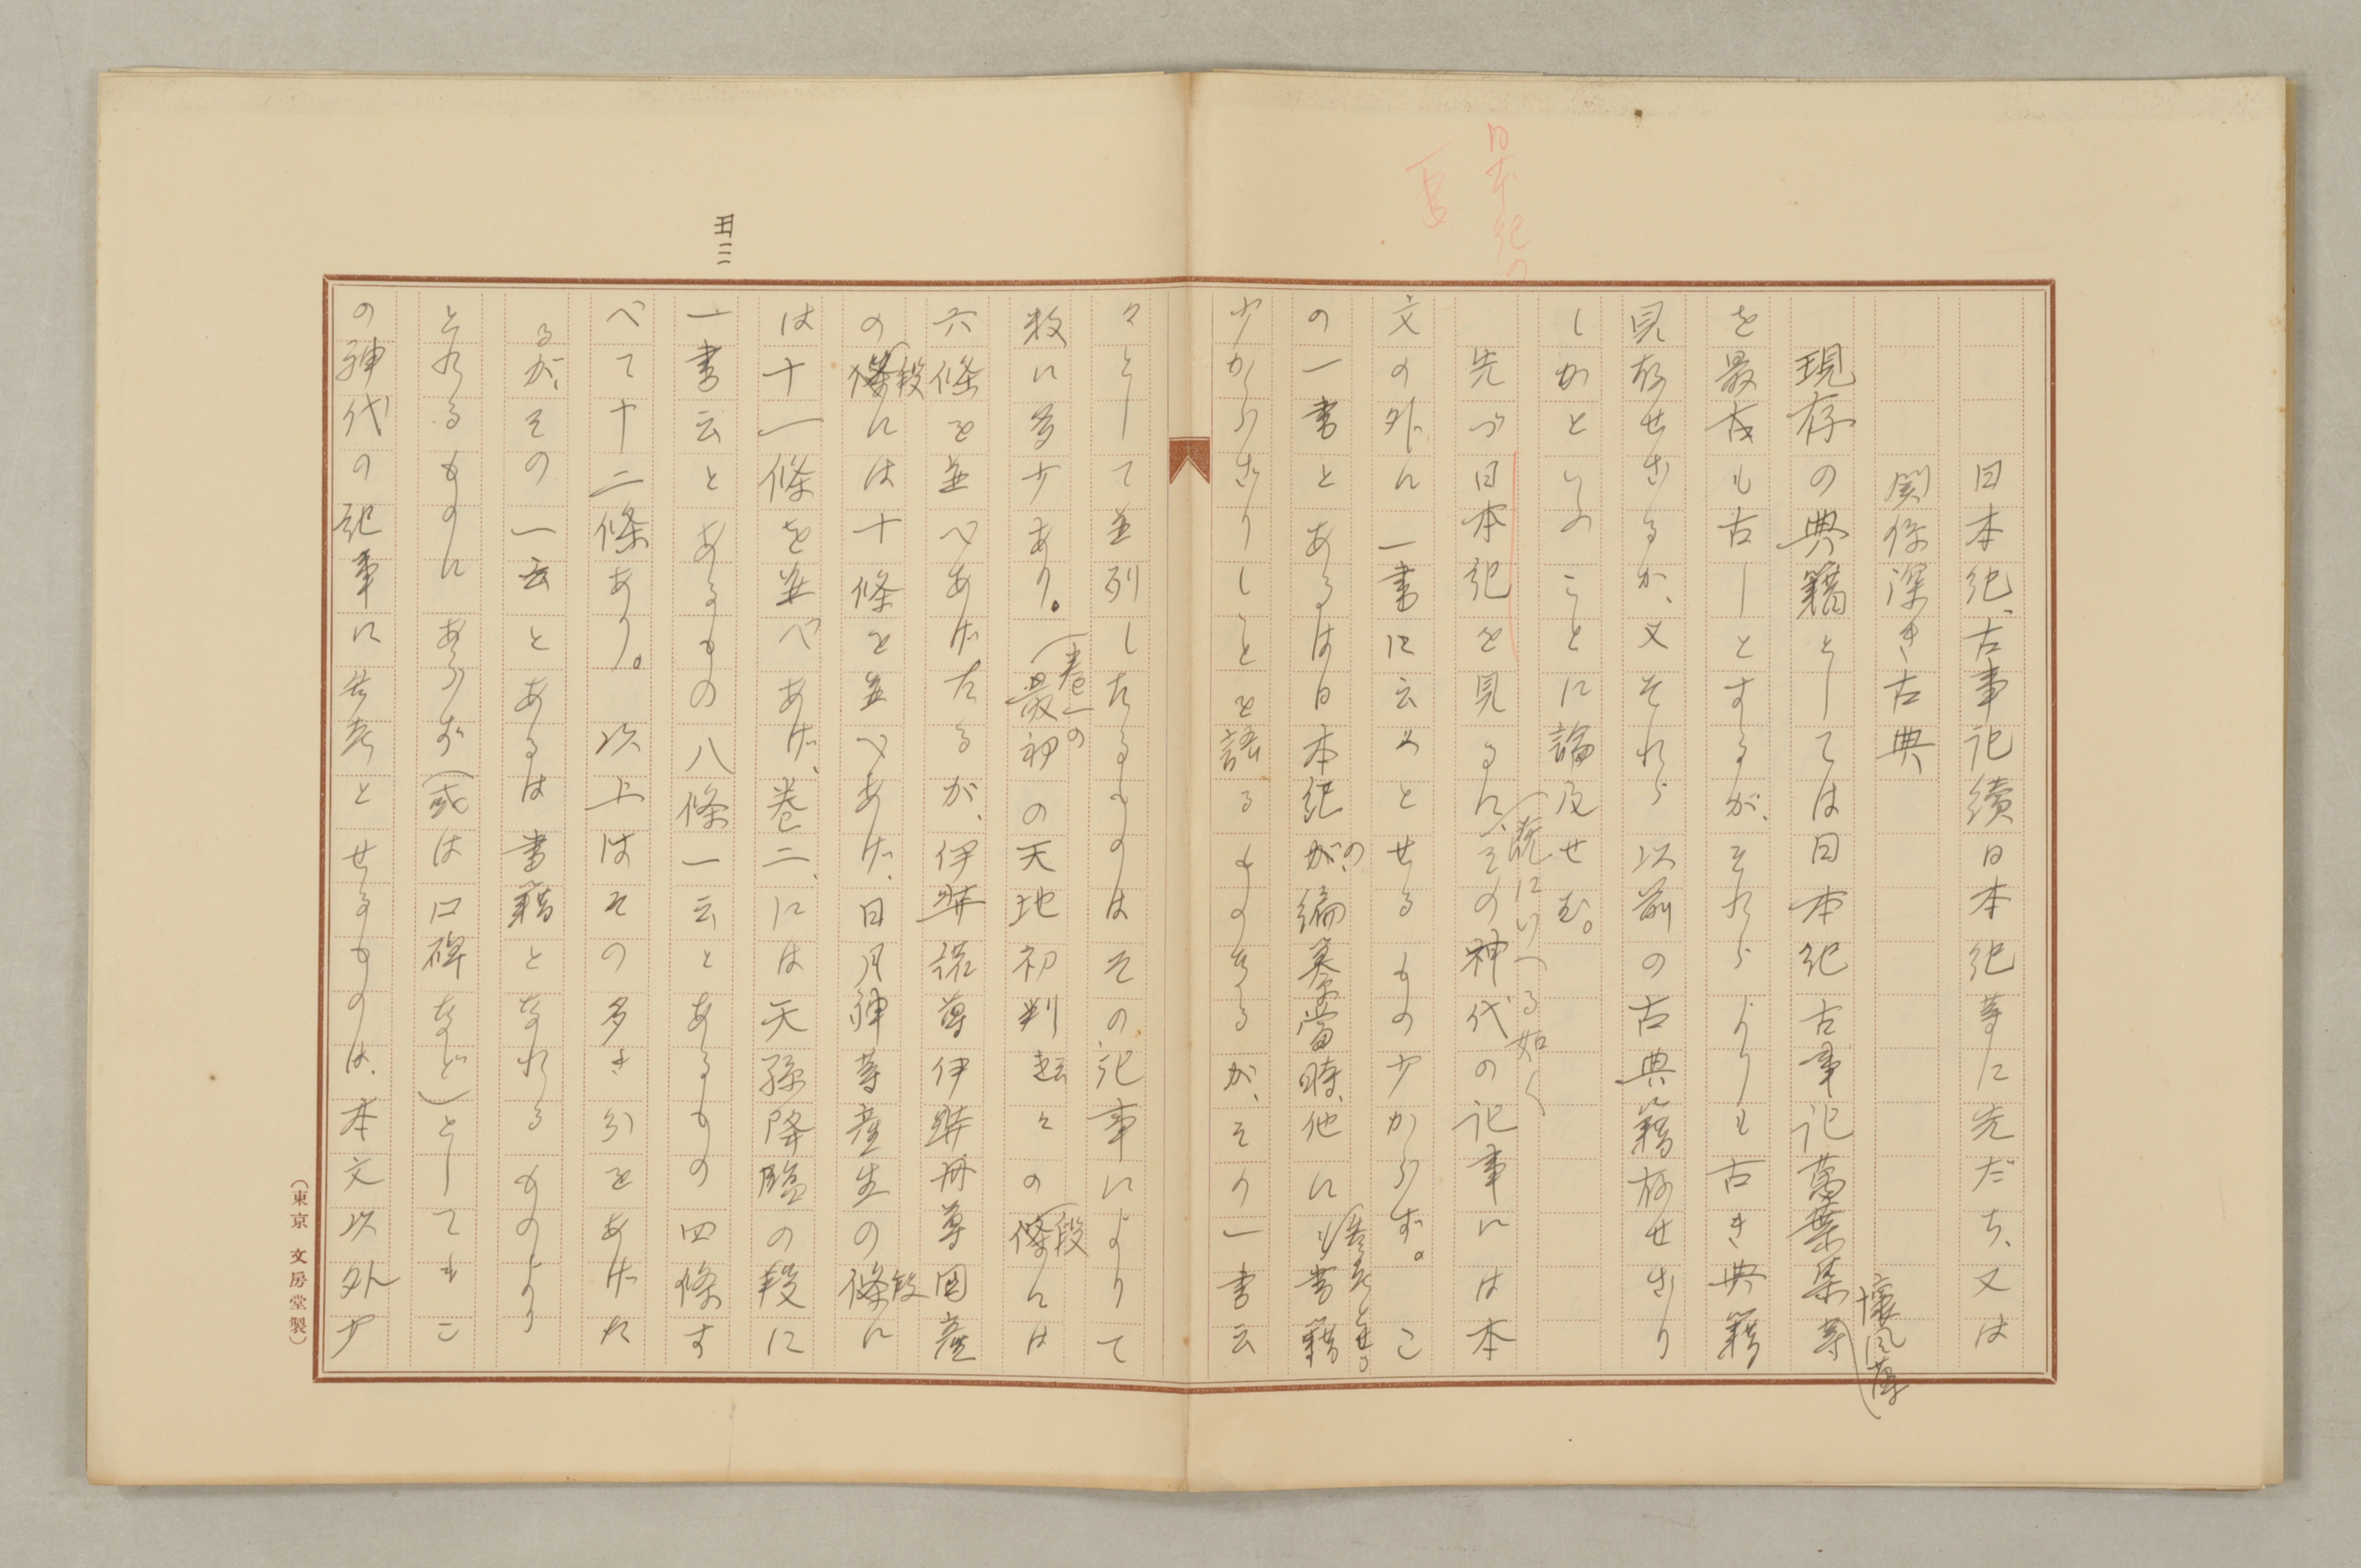 日本紀の
一書
日本紀、古事記續日本紀等に先だち、又は
関係深き古典
懐風藻
現存の典籍としては日本紀古事記萬葉集等
を最も古しとするが、それらよりも古き典籍
見存せざるか、又それら以前の古典籍存せざり
しかといふことに論及せむ。
既にいへる如く
先づ日本紀を見るに、その神代の記事には本
文の外に一書に云はとせるもの少からず。こ
の一書とあるは日本紀の編纂當時、他に書籍
少からざりしことを語るものなるが、その一書云
々として並列したるものはその記事によりて
数に多少あり。巻一の最初の天地初判云々の段には
六條を並べあげたるが、伊弉諾尊伊弉冊尊国産
の段には十條を並べあげ、日月神等産生の段に
は十一條を並べあげ、巻二、には天孫降臨の段に
一書云とあるもの八條一云とあるもの四條す
べて十二條あり。以上はその多き例をあげた
るが、その一云とあるは書籍となれるものより
とれるものにあらず(或は口碑など)としてもこ
の神代の記事に参考とせるものは、本文以外少
(東京 文房堂製)